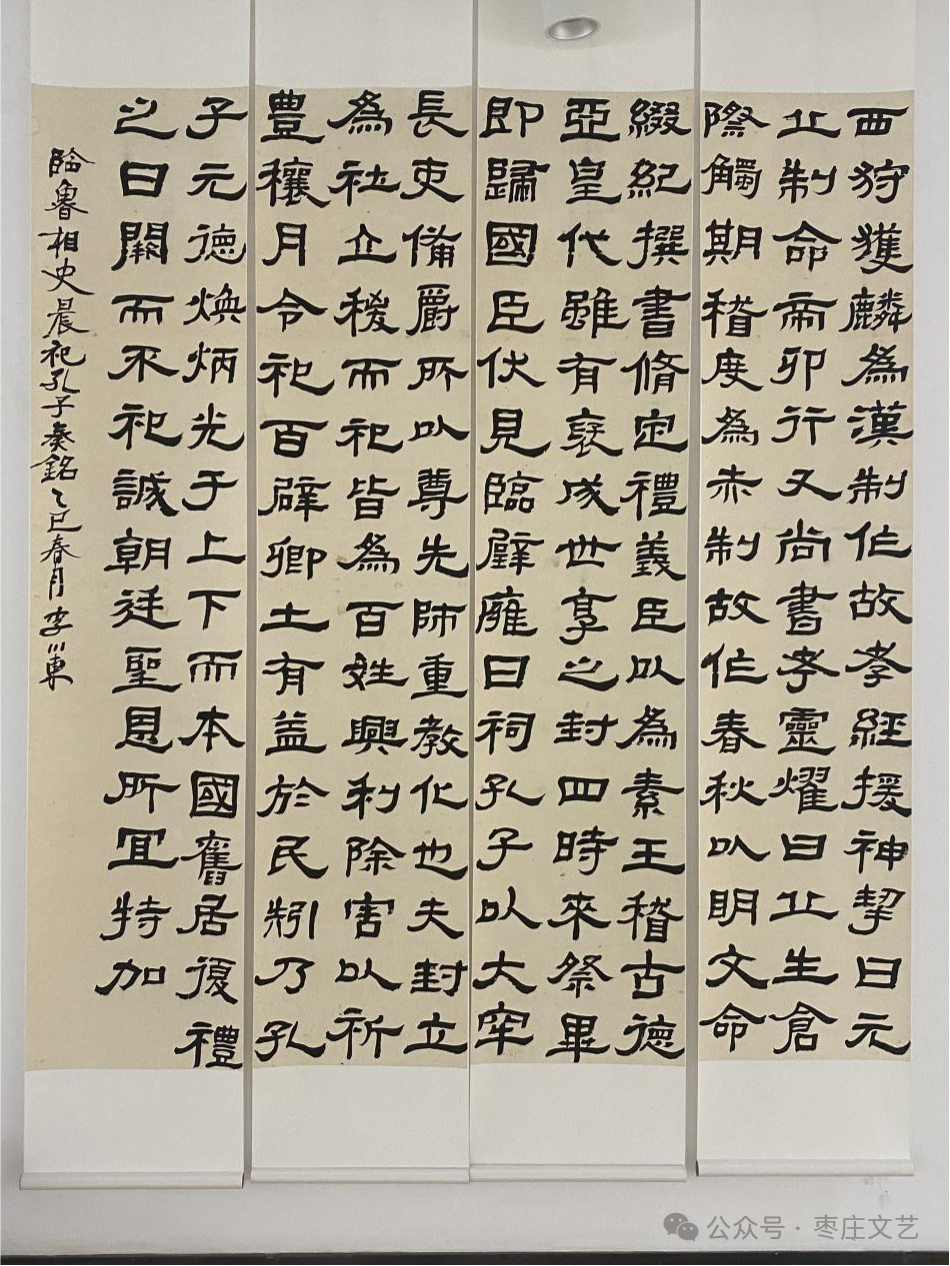 西狩獲麟為漢制作故孝經援神挈曰元
丘制命帝卯行又尚書考靈燿曰丘生倉
際觸期稽度為赤制故作春秋以明文命
綴紀撰書脩定禮義臣以為素王稽古德
亞皇代雖有褒成世享之封四時來祭畢
即歸國臣伏見臨璧雍日祠孔子以大牢
長吏備爵所以尊先師重教化也夫封立
為社立稷而祀皆為百姓興利除害以祈
豊穰月令祀百辟卿士有益於民矧乃孔
子元德煥炳光于上下而本國舊居復禮
之日闕而不祀誠朝廷聖恩所宜特加
臨魯相史晨祀孔子奏銘乙巳春月李川東
公众号 · 枣庄文艺